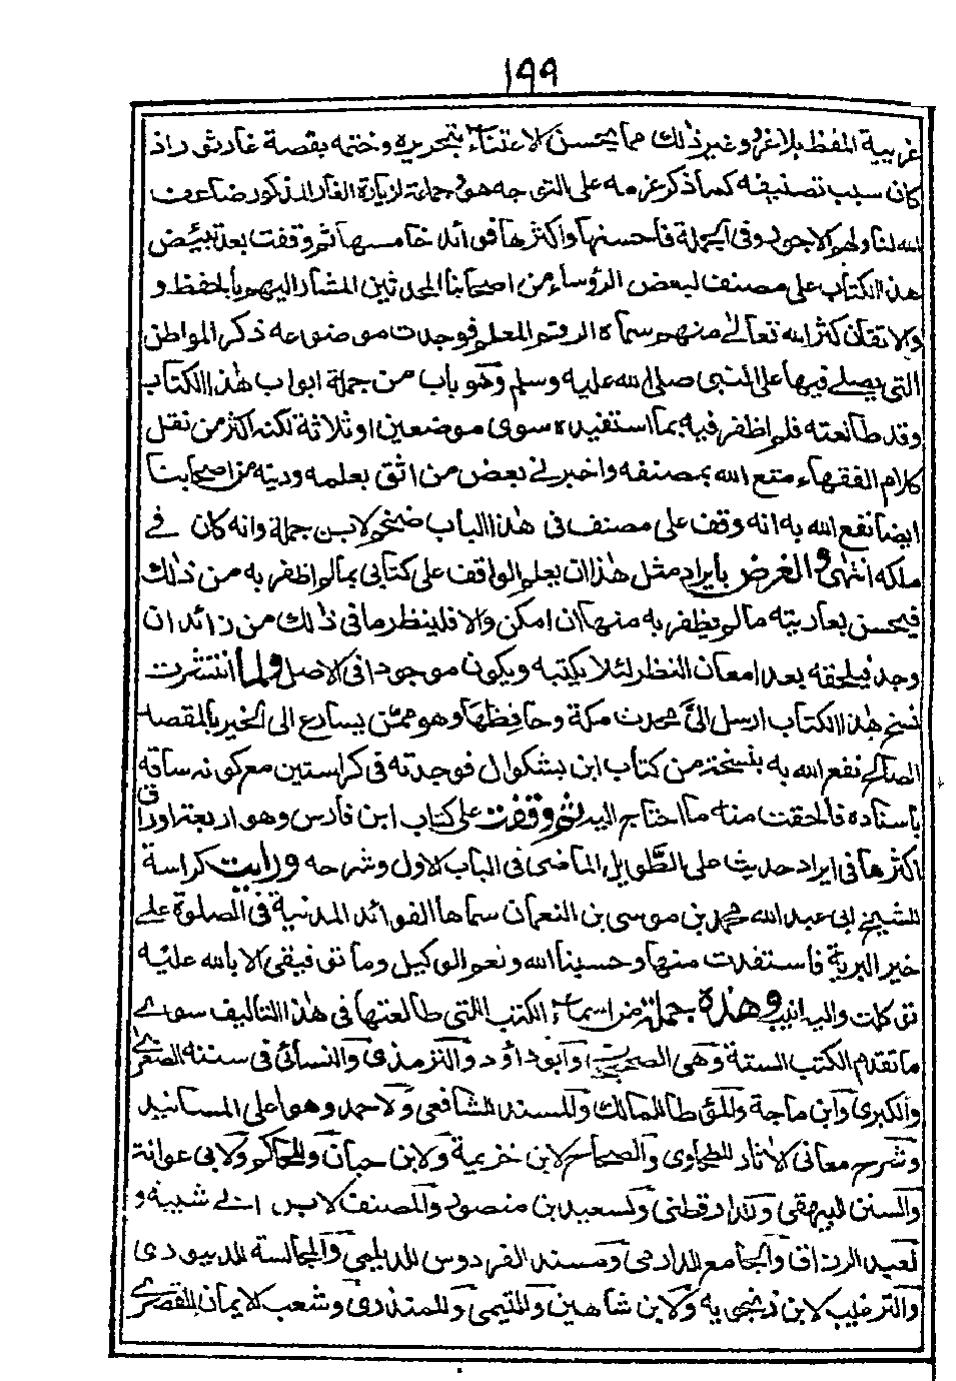 ١٩٩
غريبة اللفظ بلا غرو وغير ذلك مما يحسن الاعتناء بتحريره وختمه بقصة غار ثور اذ
كان سبب تصنيفه كما ذكر عزمه على التوجه هو وجماعة لزيارة الغار المذكور ضاعف
الله لنا ولهم الاجور وفى الجملة فاحسنها واكثرها فوائد خامسها ثم وقفت بعد تبييض
هذا الكتاب على مصنف لبعض الرؤساء من اصحابنا المحدثين المشار اليهم بالحفظ و
والاتقان كثر الله تعالى منهم سماه الرقم المعلم فوجدت موضوعه ذكر المواطن
التى يصلى فيها على النبى صلى الله عليه وسلم وهو باب من جملة ابواب هذا الكتاب
وقد طالعته فلم اظفر فيه بما استفيده سوى موضعين او ثلاثة لكنه اكثر من نقل
كلام الفقهاء متع الله بمصنفه واخبرنى بعض من اثق بعلمه ودينه من اصحابنا
ايضا نفع الله به انه وقف على مصنف فى هذا الباب ضخم لابن جملة وانه كان فى
ملكه انتهى والغرض بايراد مثل هذا ان يعلم الواقف على كتابى بما لم اظفر به من ذلك
فيحسن بعاريته ما لم يظفر به منها ان امكن والا فلينظر ما فى ذلك من زائد ان
وجد فيلحقه بعد امعان النظر لئلا يكتبه ويكون موجودا فى الاصل ولما انتشرت
نسخ هذا الكتاب ارسل الىّ محدث مكة وحافظها وهو ممن يسارع الى الخير بالمقصد
الصالح نفع الله به بنسخة من كتاب ابن بشكوال فوجدته فى كراستين مع كونه ساقه
باسناده فالحقت منه ما احتاج اليه ثم وقفت على كتاب ابن فارس وهو اربعة اوراق
اكثرها فى ايراد حديث على الطويل الماضى فى الباب الاول وشرحه ورايت كراسة
للشيخ ابى عبد الله محمد بن موسى بن النعمان سماها الفوائد المدنية فى الصلوة على
خير البرية فاستفدت منها وحسبنا الله ونعم الوكيل وما توفيقى الا بالله عليه
توكلت واليه انيب وهذه جملة من اسماء الكتب التى طالعتها فى هذا التاليف سوى
ما تقدم الكتب الستة وهى الصحيحين وابو داؤد والترمذى والنسائى فى سننه الصغرى
والكبرى وابن ماجة والمؤطا لمالك والمسند للشافعى ولاحمد وهوا على المسانيد
وشرح معانى الاثار للطحاوى والصحاح لابن خزيمة ولابن حبان وللحاكم ولابى عوانة
والسنن للبيهقى وللدارقطنى ولسعيد بن منصور والمصنف لابن ابى شيبة و
لعبد الرزاق والجامع للدارمى ومسند الفردوس للديلمى والمجالسة للدينورى
والترغيب لابن زنجويه ولابن شاهين وللتيمى وللمنذرى وشعب الايمان للقصرى